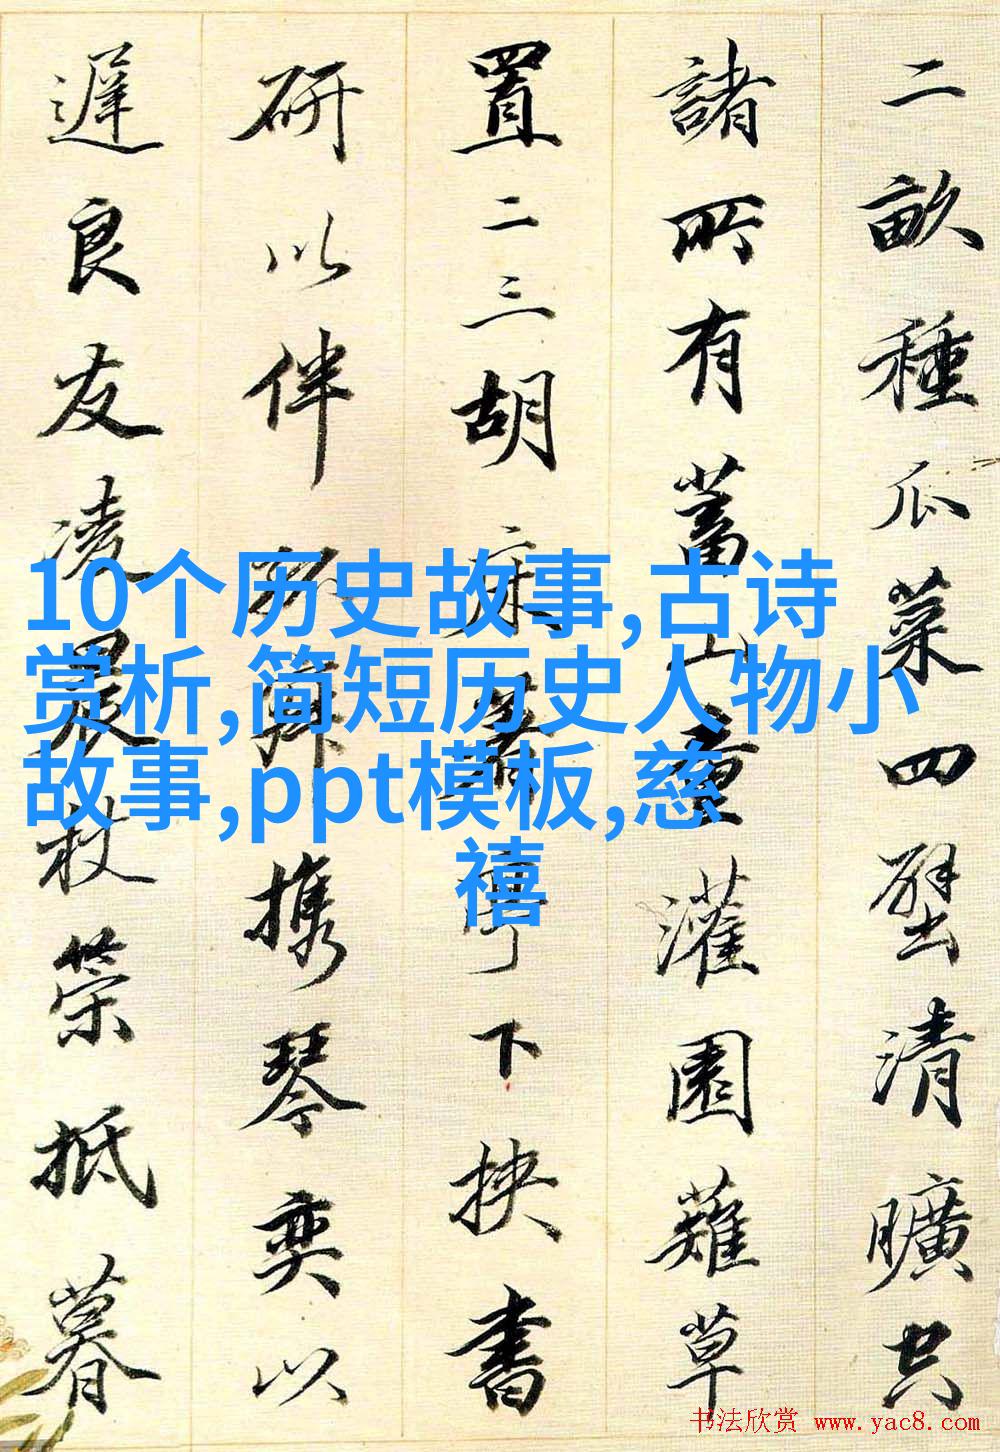 二畝種瓜菜四壁清曠共
諸所有蓄山童灌園薙草
置二三胡床著亭下挾書
研以伴孤攜琴奕以
遲良友凌晨杖策抵暮
10个历史故事,古诗
赏析,简短历史人物小
故事,ppt模板,慈
禧
书法欣赏 www.yac8.com